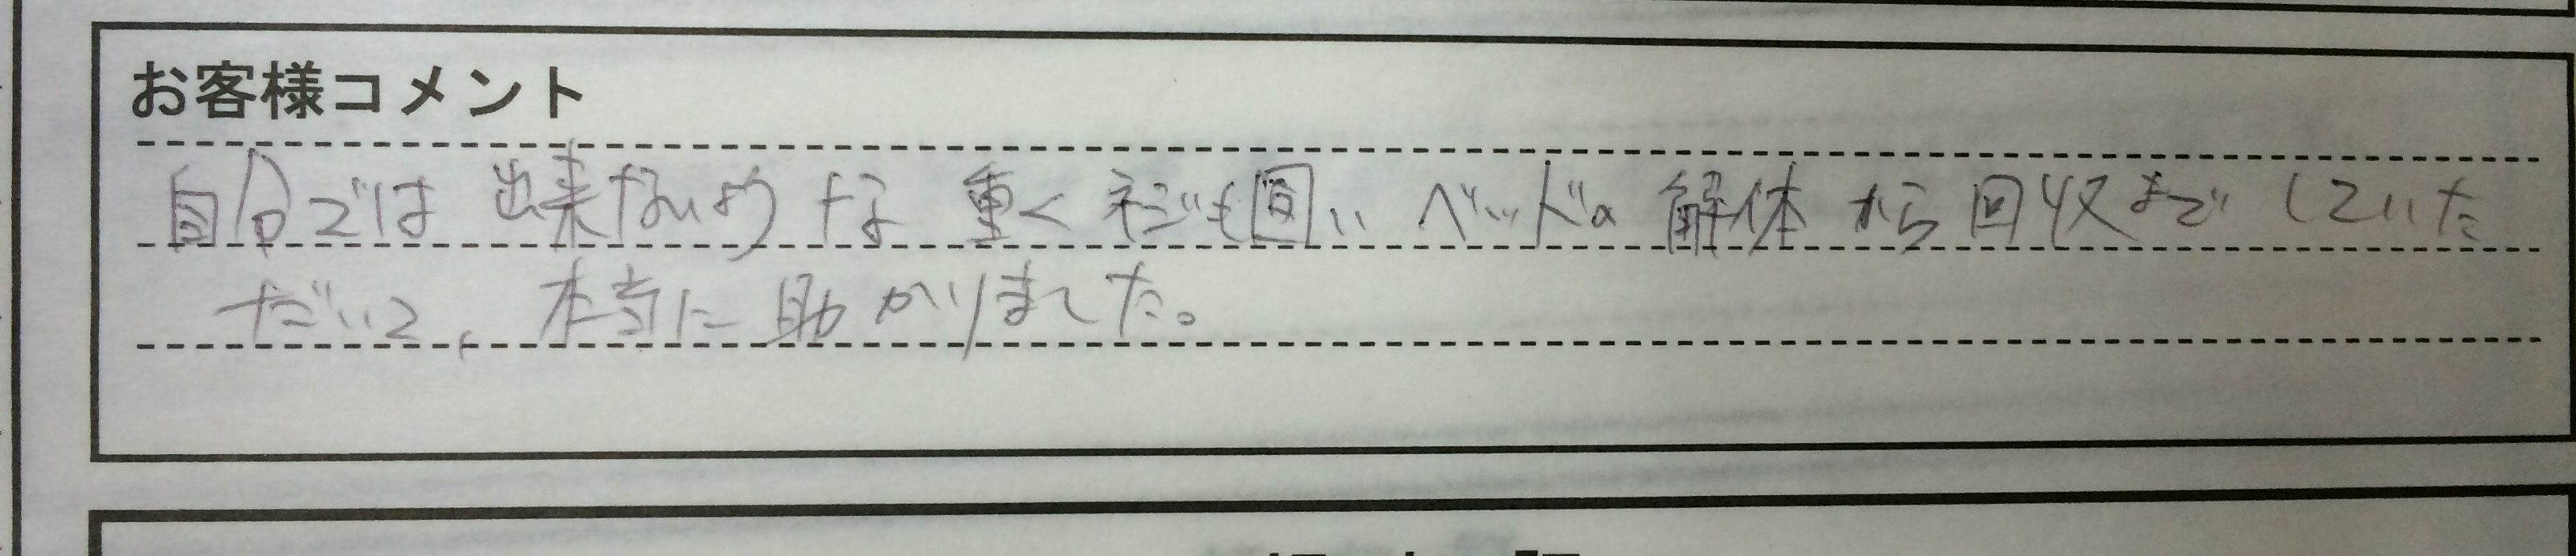 お客様コメント
自分では出来ないような重くネジも固いベッドの解体から回収までしていた
だいて、本当に助かりました。